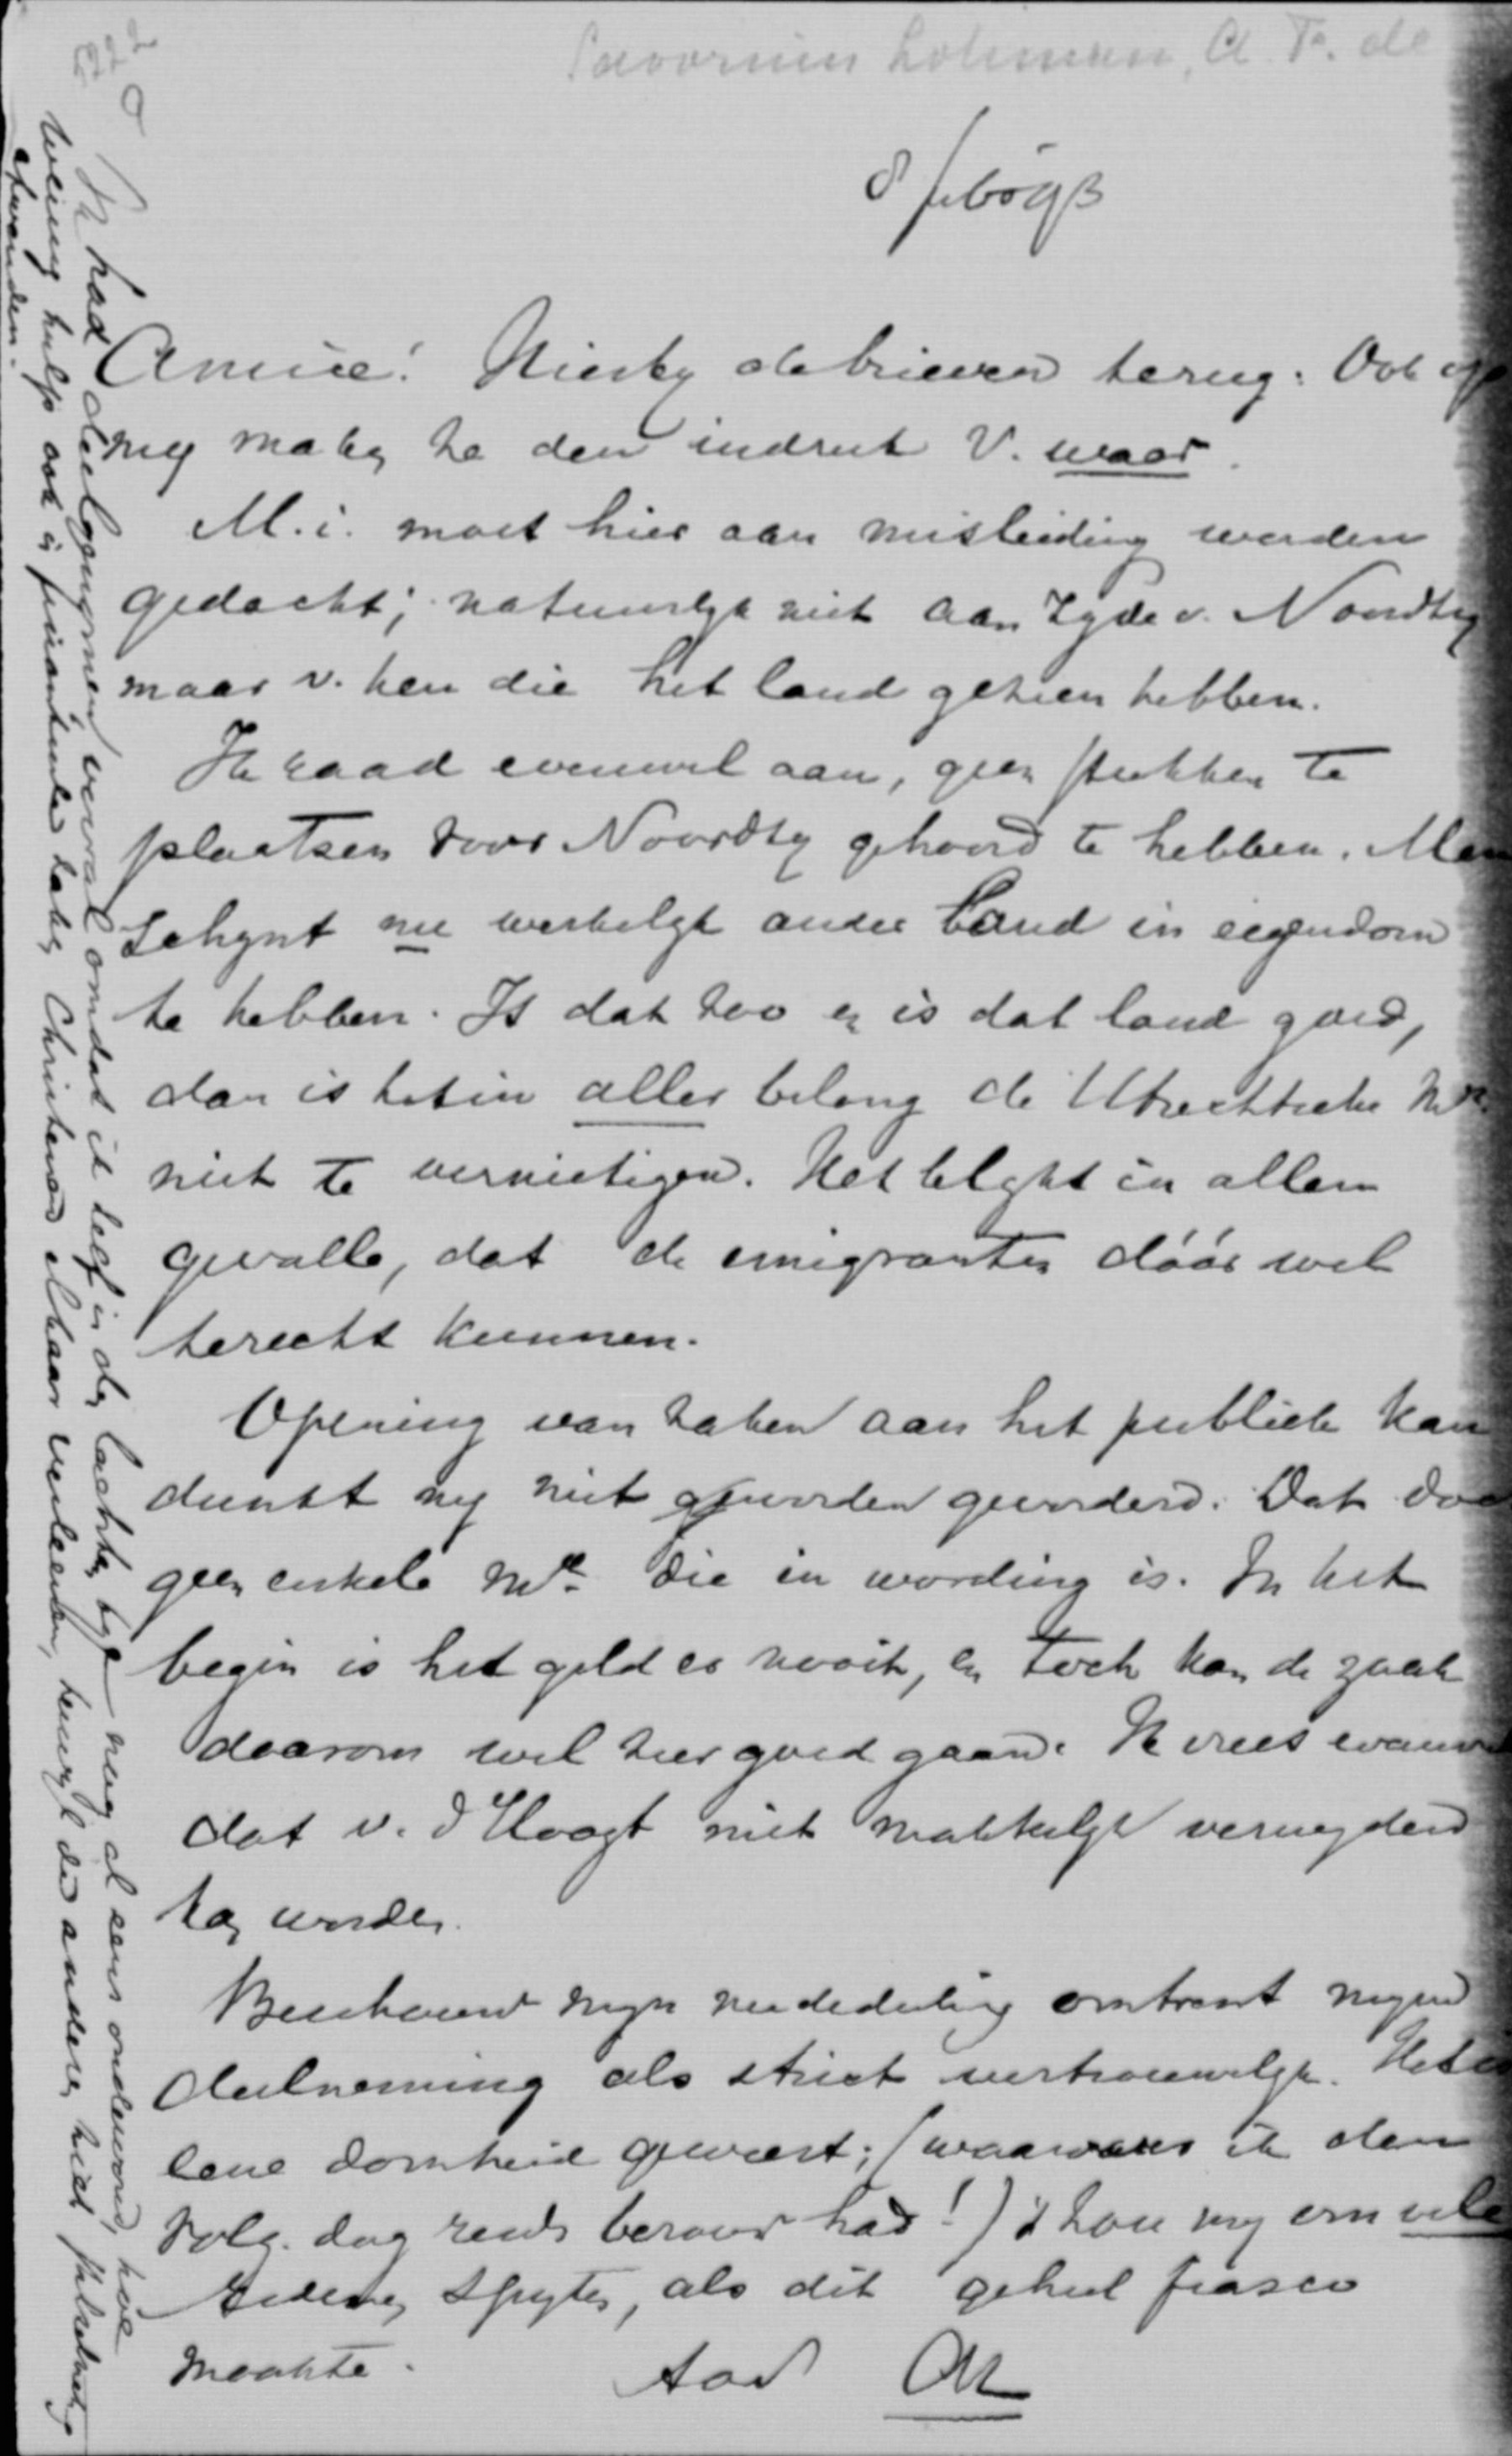 5222
a
Savornin Lohman, A. F. de
8 feb 93
Amice! Hierby de brieven terug. Ook op
my maken ze den indruk v. waar.
M.i. moet hier aan misleiding worden
gedacht; natuurlyk niet aan zyde v. Noordtzy
maar v. hen die het land gezien hebben.
Ik raad evenwel aan, geen stukken te
plaatsen voor Noordtzy gehoord te hebben. Men
schynt nu werkelyk ander land in eigendom
te hebben. Is dat zoo en is dat land goed,
dan is het in aller belang de Utrechtsche
niet te vernietigen. Het blykt in allen
gevalle, dat de emigranten dáár wel
terecht kunnen.
Opening van zaken aan het publiek kan
dunkt my niet worden gevorderd. Dat doet
geen enkele Mij die in wording is. In het
begin is het geld er nooit, en toch kan de zaak
daarom wel zeer goed gaan. Ik vrees evenwel
dat v. d Hoogt niet makkelyk verwyderd
kan worden.
Beschouw myn mededeeling omtrent mynen
deelneming als strict vertrouwelyk. Het is
eene domheid geweest; (waarvan ik den
volg. dag reeds berouw had!) 't zou my om vele
redenen spyten, als dit geheel fiasco
maakte.
Ik had deelgenomen vooral omdat ik zelf in den laatsten tyd nog al eens ondervond, hoe
weinig hulp ook in financieele zaken Christenen elkaar verleenen, terwyl de anderen niet